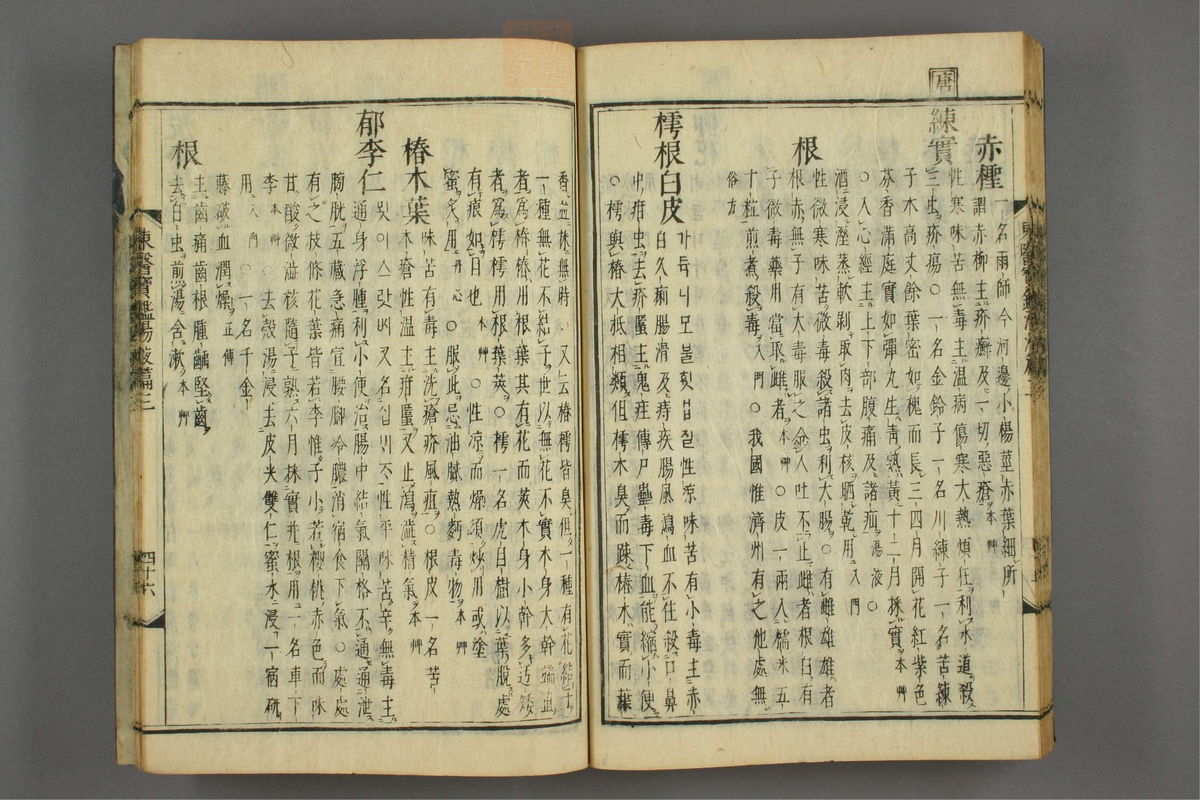 唐
赤檉 一名雨師今河邊小楊莖赤葉細所
謂赤柳主疥癬及一切惡瘡本艸
練實 性寒味苦無毒主溫病傷寒大熱煩狂利水道殺
三虫疥瘍○一名金鈴子一名川練子一名苦練
子木高丈餘葉密如槐而長三四月開花紅紫色
芬香滿庭實如彈丸生靑熟黃十二月採實本艸
○入心經主上下部腹痛及諸疝湯液○
酒浸溼蒸軟剝取肉去皮核晒乾用入門
根 性微寒味苦微毒殺諸虫利大腸○有雌雄雄者
根赤無子有大毒服之令人吐不止雌者根白有
子微毒藥用當取雌者本艸○皮一兩入糯米五
十粒煎煮殺毒入門○我國惟濟州有之他處無
俗方
樗根白皮 가듁나모불휫겁질性凉味苦有小毒主赤
白久痢腸滑及痔疾腸風瀉血不住殺口鼻
中疳虫去疥𧏾主鬼疰傳尸蠱毒下血能縮小便
○樗與椿大抵相類但樗木臭而踈椿木實而葉
香並採無時○又云椿樗皆臭但一種有花結子
一種無花不結子世以無花不實木身大幹端直
者爲椿椿用根葉其有花而莢木身小幹多迃矮
者爲樗樗用根葉莢○樗一名虎目樹以葉脫處
有痕如目也本艸○性凉而燥須炒用或塗
蜜灸用丹心○服此忌油膩熱麪毒物本艸
椿木葉 味苦有毒主洗瘡疥風疽○根皮一名苦
本瘡性溫主疳𧏾又止瀉澁精氣本艸
郁李仁 묏이스랏ᄡᅵ又名산ᄆᆡᄌᆞ性平味苦辛無毒主
通身浮腫利小便治腸中結氣關格不通通泄
膀胱五藏急痛宣腰脚冷膿消宿食下氣○處處
有之枝條花葉皆若李惟子小若櫻桃赤色而味
甘酸微澁核隨子熟六月採實幷根用一名車下
李本艸○去殼湯浸去皮尖雙仁蜜水浸一宿硏
用入門○一名千金
藤破血潤燥正傳
根 主齒痛齒根腫䘌堅齒
去白虫煎湯含漱本艸
東醫寶鑑湯液篇三
四十六